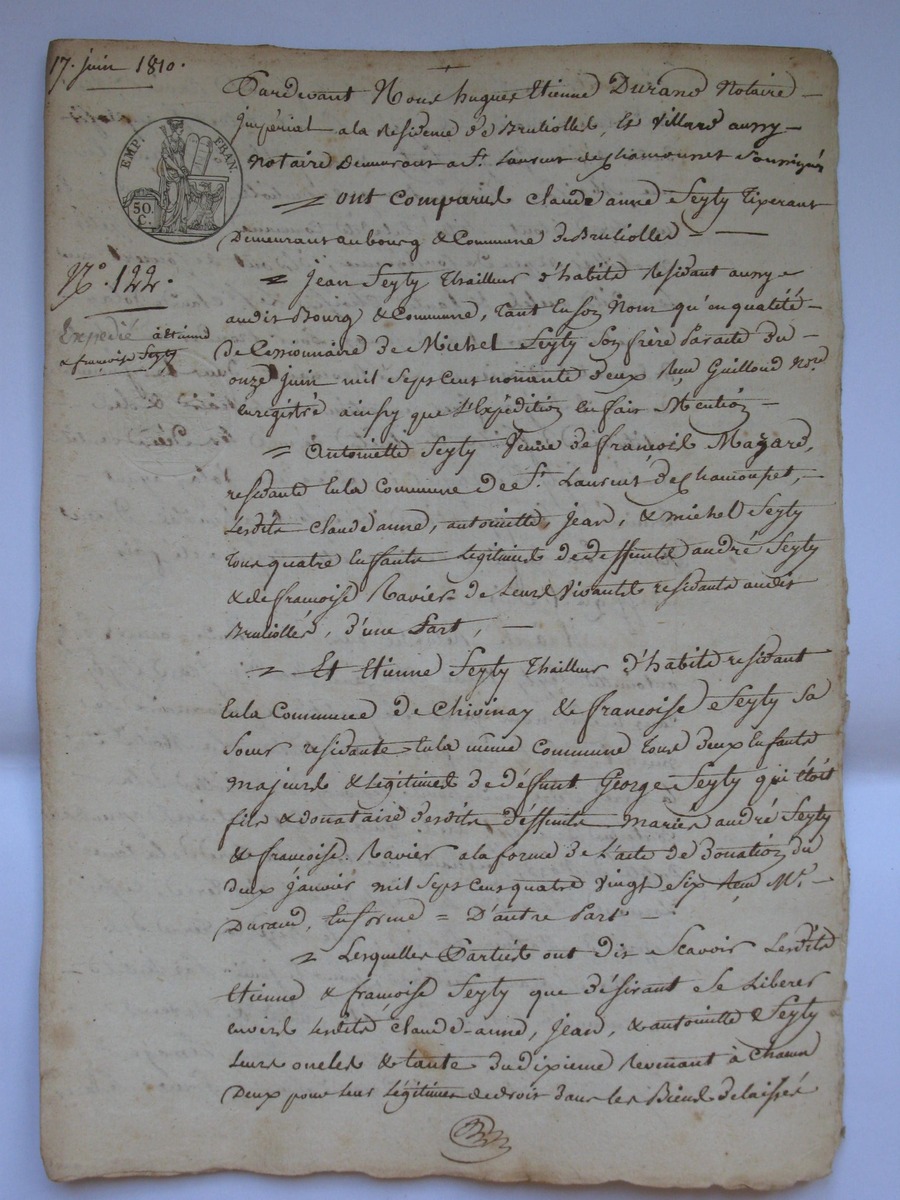 17. juin 1810.
EMP. FRAN.
50. C.
N.° 122.
Expedié à Etienne
& françoise Seyty
Pardevant Nous hugues Etienne Durand Notaire
impérial a la residence de Brullioles, Et Villard aussy
notaire Demeurant a S.t Laurent de Chamousset soussignés
= ont comparus Claude anne Seyty Tixerant
Demeurant au bourg & Commune de Brullioles
= Jean Seyty Thailleur d'habits residant aussy
audit Bourg & Commune, tant en son Nom qu'en qualité
de Cessionnaire de Michel Seyty son frère Par acte du
onze juin mil sept cent nonante deux Reçu Guilloud N.re
enregistré ainsy que l'Expédition en fait Mention
= Antoinette Seyty Veuve de françois Mazard,
residante en la Commune de S.t Laurent de Chamousset,
Lesdits Claude anne, antoinette, jean, & michel Seyty
tous quatre Enfants Légitimes de deffunts andré Seyty
& de françoise Ravier de Leurs Vivants residants audit
Brullioles, d'une Part,
= Et Etienne Seyty Thailleur d'habits residant
en la Commune de Chivinay & françoise Seyty sa
soeur residante en la même Commune tous deux Enfants
majeurs & Légitimes de déffunt George Seyty qui étoit
fils & donataire desdits déffunts mariés andré Seyty
& françoise Ravier a la forme de L'acte de Donation du
deux janvier mil sept cent quatre vingt six Reçu M.e
Durand, En forme = D'autre Part
= Lesquelles Parties ont dit Scavoir Lesdits
Etienne & françoise Seyty que désirant se Liberer
envers Lesdits Claude-anne, jean, & antoinette Seyty
Leurs oncles & tante du dixieme Revenant à Chacun
Deux pour leur Légitimes de droit dans les Biens delaissés